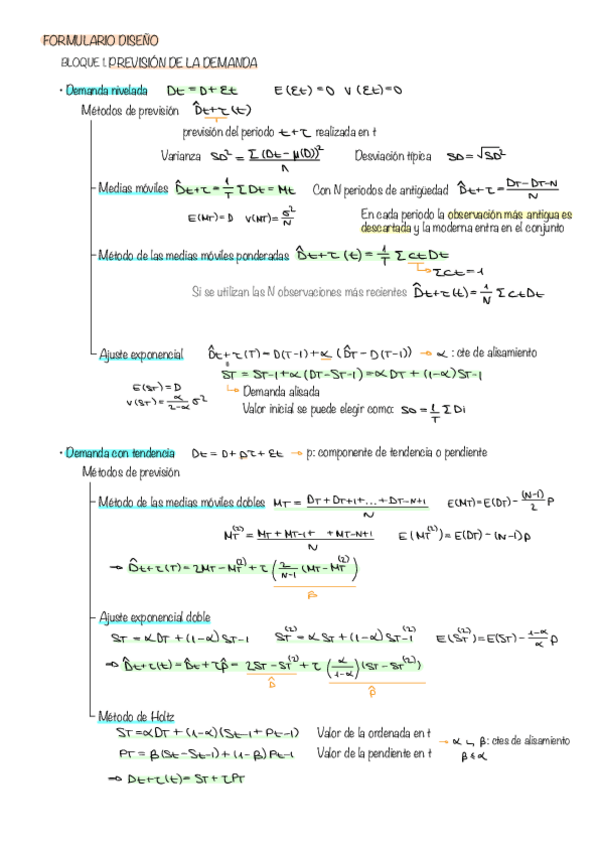 FORMULARIO DISEÑO
BLOQUE 1. PREVISIÓN DE LA DEMANDA
· Demanda nivelada Dt = D + Et E(Et) = 0 V(Et) = 0
Métodos de previsión D̂t+τ(t)
previsión del periodo t+τ realizada en t
Varianza SD² = Σ(Dt - μ(D))² / N Desviación típica SD = √SD²
Medias móviles D̂t+τ = 1/T Σ Dt = Mt Con N periodos de antigüedad D̂t+τ = DT - DT-N / N
E(MT) = D V(MT) = σ²/N En cada periodo la observación más antigua es
descartada y la moderna entra en el conjunto
Método de las medias móviles ponderadas D̂t+τ(t) = 1/T Σ ct Dt
Σct = 1
Si se utilizan las N observaciones más recientes D̂t+τ(t) = 1/N Σ ct Dt
Ajuste exponencial D̂t+τ(T) = D(T-1) + α (D̂T - D(T-1)) → α : cte de alisamiento
ST = ST-1 + α (DT - ST-1) = α DT + (1-α) ST-1
E(ST) = D
V(ST) = α/2-α σ²
Demanda alisada
Valor inicial se puede elegir como: S0 = 1/T Σ Di
· Demanda con tendencia Dt = D + pτ + Et → p: componente de tendencia o pendiente
Métodos de previsión
Método de las medias móviles dobles MT = DT + DT+1 + ... + DT-N+1 / N E(MT) = E(DT) - (N-1)/2 p
MT⁽²⁾ = MT + MT-1 + + MT-N+1 / N E(MT⁽²⁾) = E(DT) - (N-1) p
→ D̂t+τ(T) = 2MT - MT⁽²⁾ + τ (2/N-1 (MT - MT⁽²⁾)
p̂
Ajuste exponencial doble
ST = α DT + (1-α) ST-1 ST⁽²⁾ = α ST + (1-α) ST-1⁽²⁾ E(ST⁽²⁾) = E(ST) - 1-α/α p
⇒ D̂t+τ(t) = D̂t + τp̂ = 2ST - ST⁽²⁾ + τ (α/1-α)(ST - ST⁽²⁾)
D̂ p̂
Método de Holtz
ST = αDT + (1-α)(St-1 + Pt-1) Valor de la ordenada en t → α y β: ctes de alisamiento
PT = β(St - St-1) + (1-β) Pt-1 Valor de la pendiente en t β ≤ α
⇒ Dt+τ(t) = ST + τPT